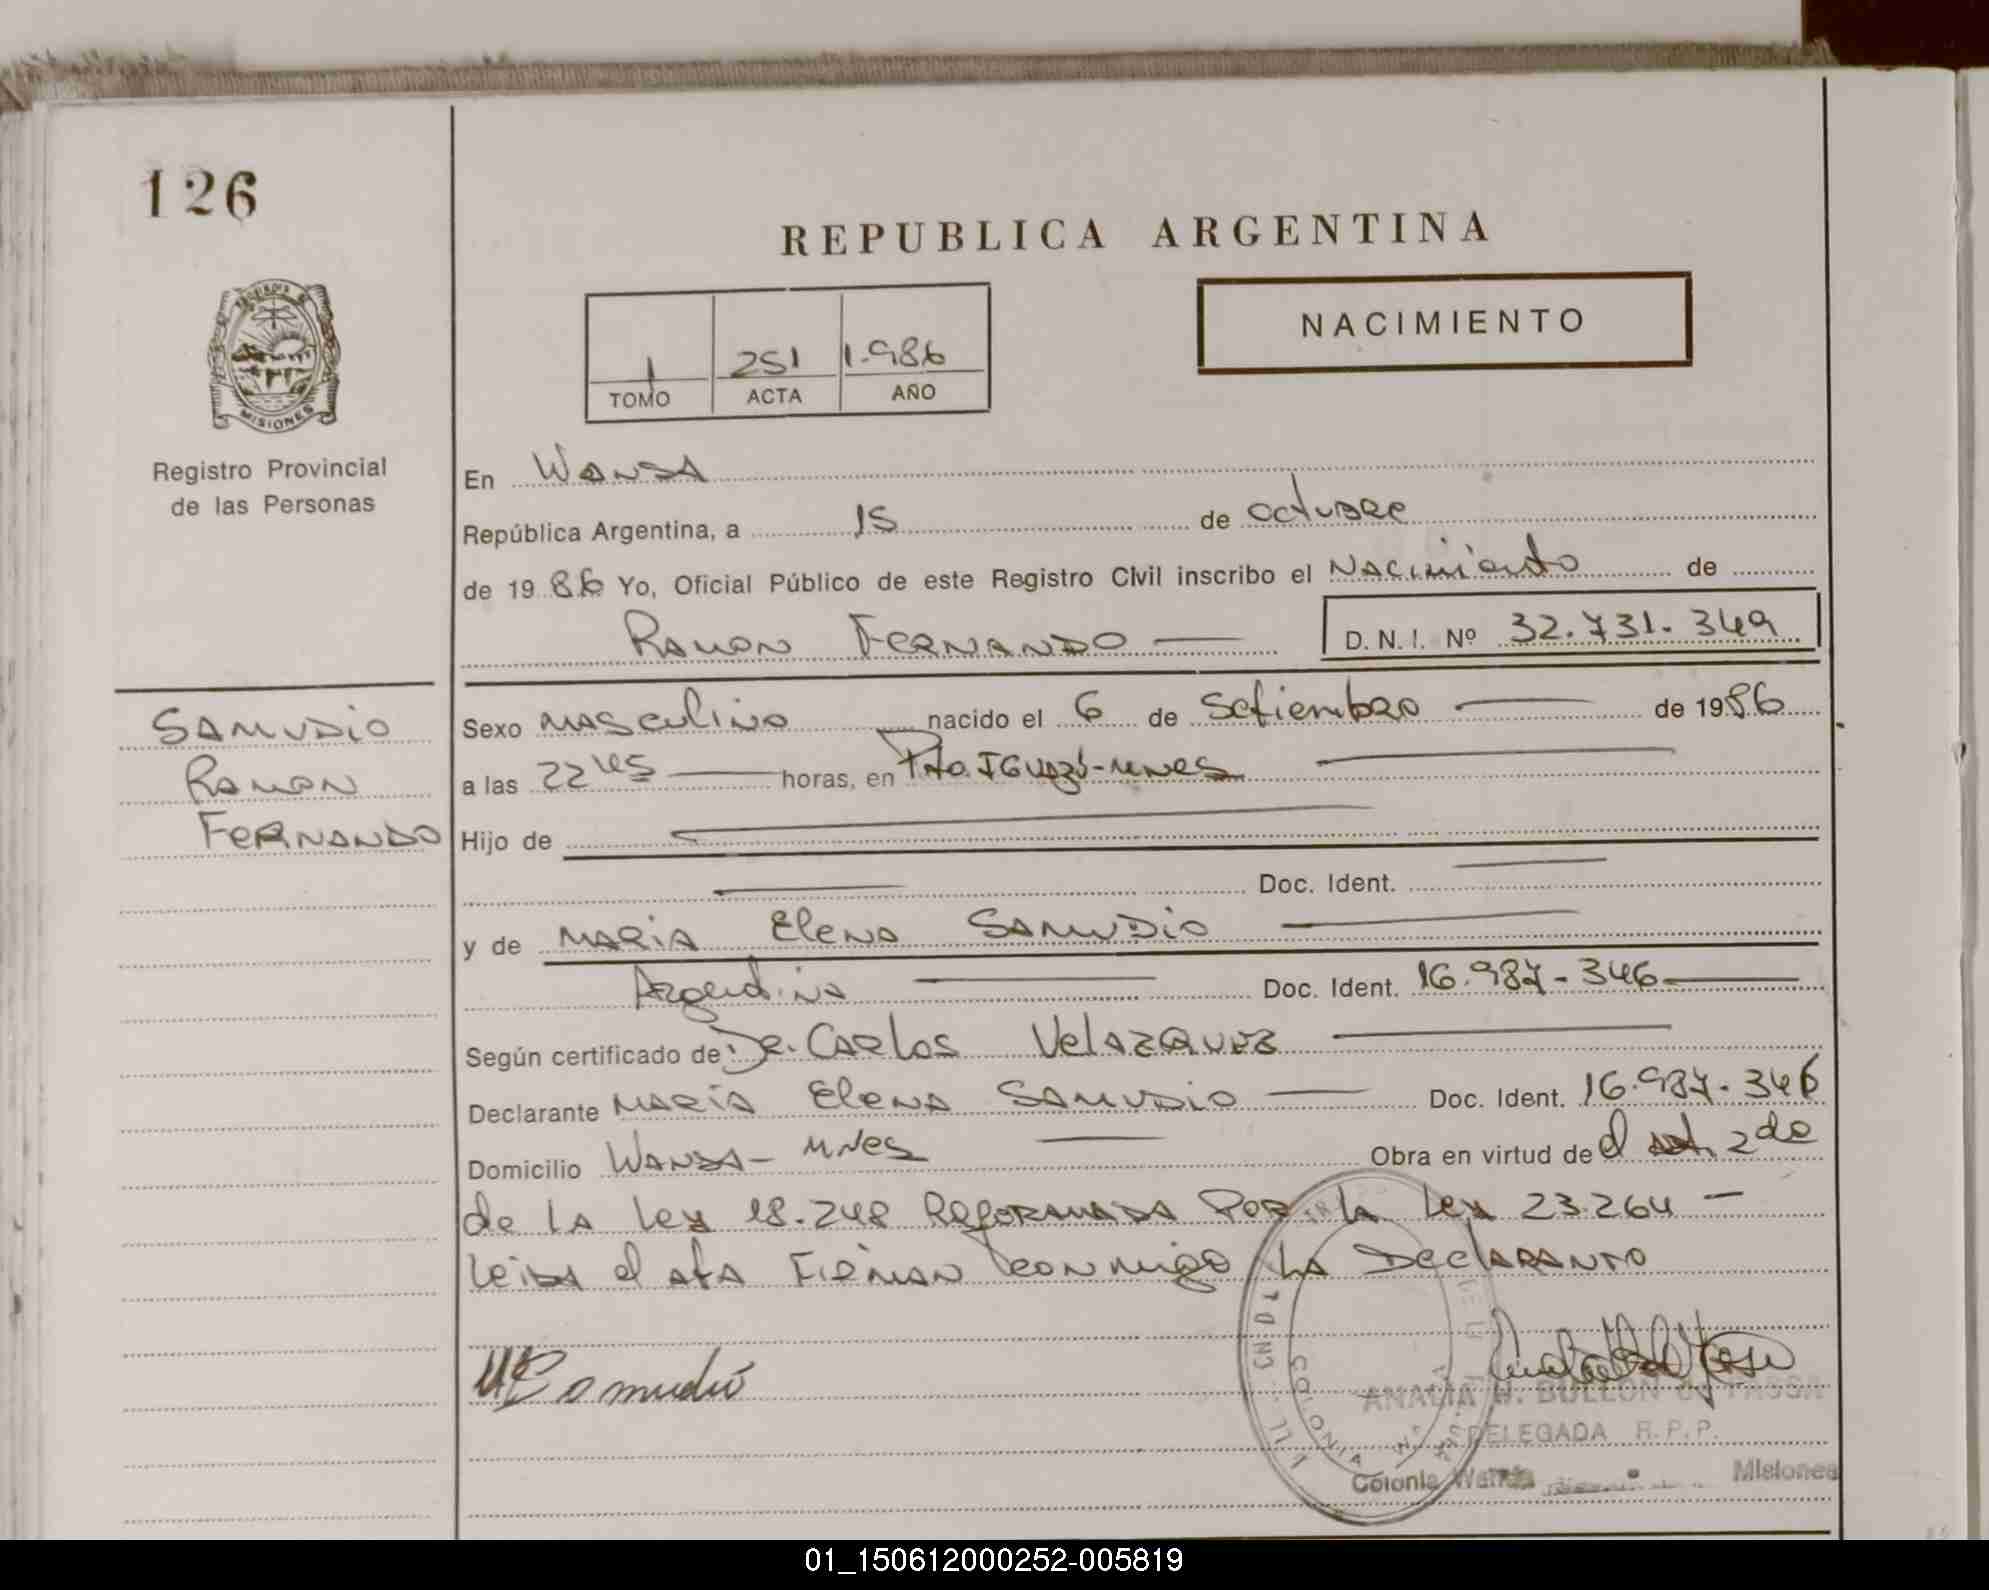 126
REPUBLICA ARGENTINA
NACIMIENTO
1 251 1.986
TOMO ACTA AÑO
MISIONES
Registro Provincial
de las Personas
En Wanda
República Argentina, a 15 de octubre
de 1986 Yo, Oficial Público de este Registro Civil inscribo el Nacimiento de
Ramon Fernando D. N. I. Nº 32.731.349
Samudio
Ramon
Fernando
Sexo masculino nacido el 6 de Setiembre de 1986
a las 22 hs horas, en Pto. Iguazú - Mnes
Hijo de
Doc. Ident.
y de Maria Elena Samudio
Argentina Doc. Ident. 16.987.346
Según certificado de Dr. Carlos Velazquez
Declarante Maria Elena Samudio Doc. Ident. 16.987.346
Domicilio Wanda - Mnes Obra en virtud de el art. 2 de
de la Ley 18.248 Reformada por la Ley 23.264 -
Leida el acta Firman conmigo la Declarante
M E Samudio
DELEGADA R. P. P.
Colonia Wanda Misiones
01_150612000252-005819